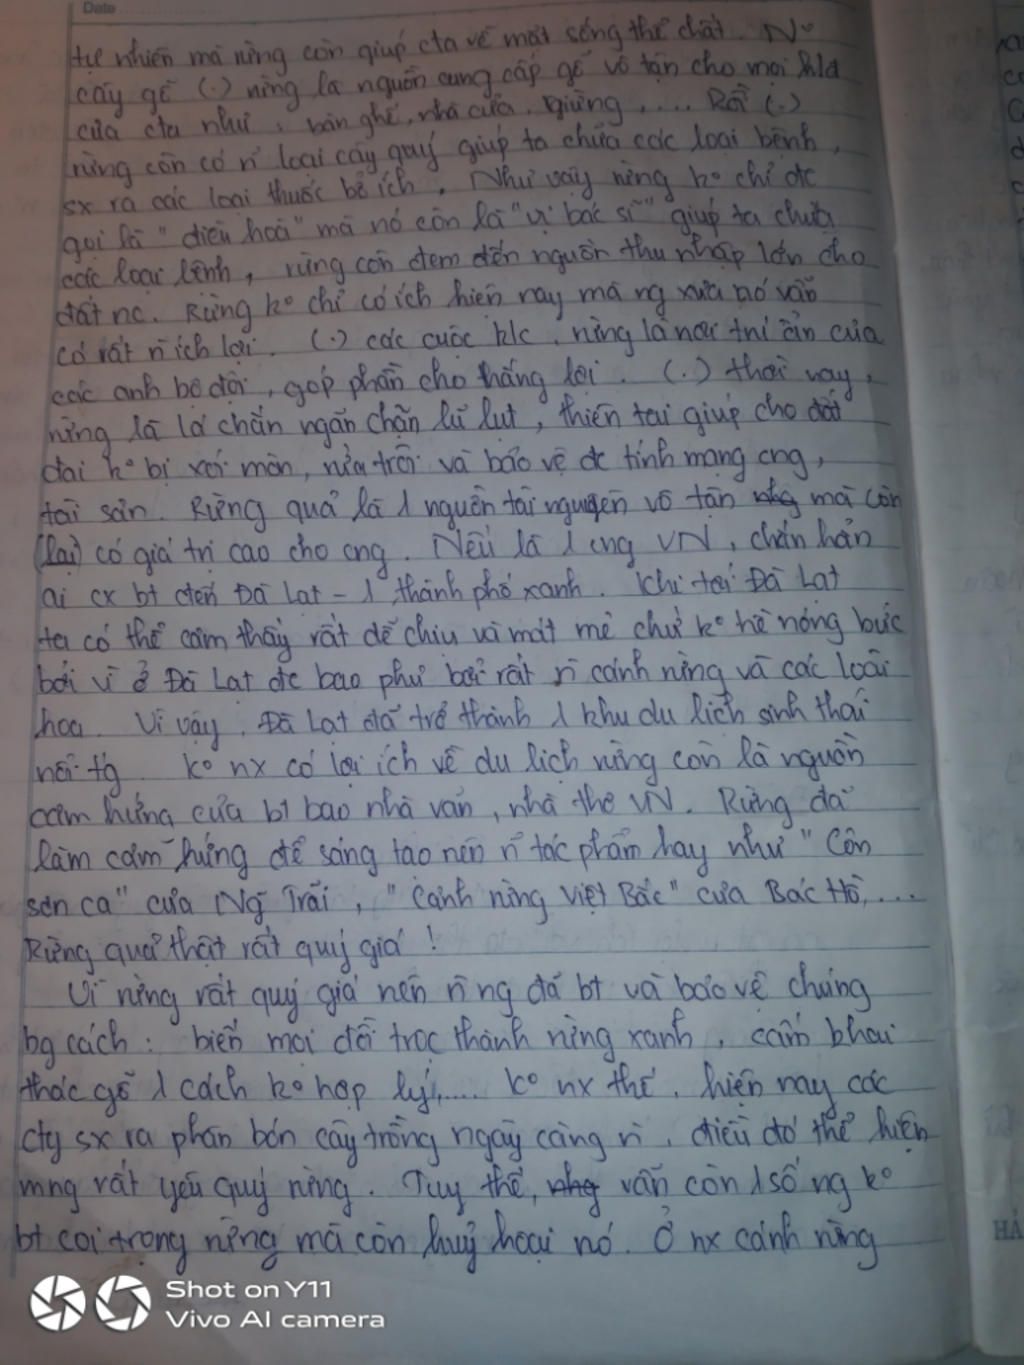 Date
tự nhiên mà rừng còn giúp cta về mặt sống thể chất. N°
cây gỗ (.) rừng là nguồn cung cấp gỗ vô tận cho mọi
của cta như: bàn ghế, nhà cửa, giường, .... Rồi (.)
rừng còn có n̄ loại cây quý giúp ta chữa các loại bệnh,
sx ra các loại thuốc bổ ích. Như vậy rừng k° chỉ đc
gọi là "điều hoà" mà nó còn là "vị bác sĩ" giúp ta chữa
các loại bệnh, rừng còn đem đến nguồn thu nhập lớn cho
đất nc. Rừng k° chỉ có ích hiện nay mà ng xưa nó vẫn
có rất n̄ ích lợi. (.) các cuộc k/c, rừng là nơi trú ẩn của
các anh bộ đội, góp phần cho thắng lợi. (.) thời nay,
rừng là lá chắn ngăn chặn lũ lụt, thiên tai giúp cho đất
đai k° bị xói mòn, rửa trôi và bảo vệ đc tính mạng cng,
tài sản. Rừng quả là 1 nguồn tài nguyên vô tận nhg mà còn
(lại) có giá trị cao cho cng. Nếu là 1 cng VN, chắn hẳn
ai cx bt đến Đà Lạt - 1 thành phố xanh. Khi tới Đà Lạt
ta có thể cảm thấy rất dễ chịu và mát mẻ chứ k° hề nóng bức
bởi vì ở Đà Lạt đc bao phủ bởi rất n̄ cánh rừng và các loài
hoa. Vì vậy, Đà Lạt đã trở thành 1 khu du lịch sinh thái
nổi tg. K° nx có lợi ích về du lịch rừng còn là nguồn
cảm hứng của bt bao nhà văn, nhà thơ VN. Rừng đã
làm cảm hứng để sáng tạo nên n̄ tác phẩm hay như "Côn
sơn ca" của Ng̃ Trãi, "Cảnh rừng Việt Bắc" của Bác Hồ,....
Rừng quả thật rất quý giá!
Vì rừng rất quý giá nên n̄ ng đã bt và bảo vệ chúng
bg cách: biến mọi đồi trọc thành rừng xanh, cấm khai
thác gỗ 1 cách k° hợp lý,.... K° nx thế, hiện nay các
cty sx ra phân bón cây trồng ngày càng n̄, điều đó thể hiện
mng rất yêu quý rừng. Tuy thế, nhg vẫn còn 1 số ng k°
bt coi trọng rừng mà còn huỷ hoại nó. Ở nx cánh rừng
Shot on Y11
Vivo AI camera